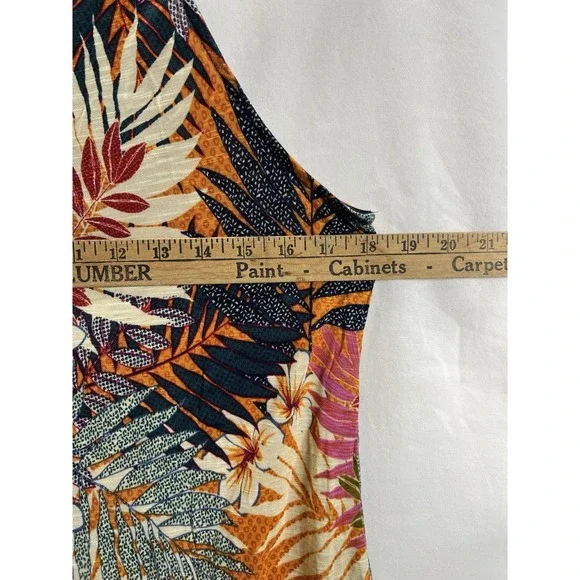 11 12 13 14 15 16 17 18 19 20 21
LUMBER Paint - Cabinets - Carpet